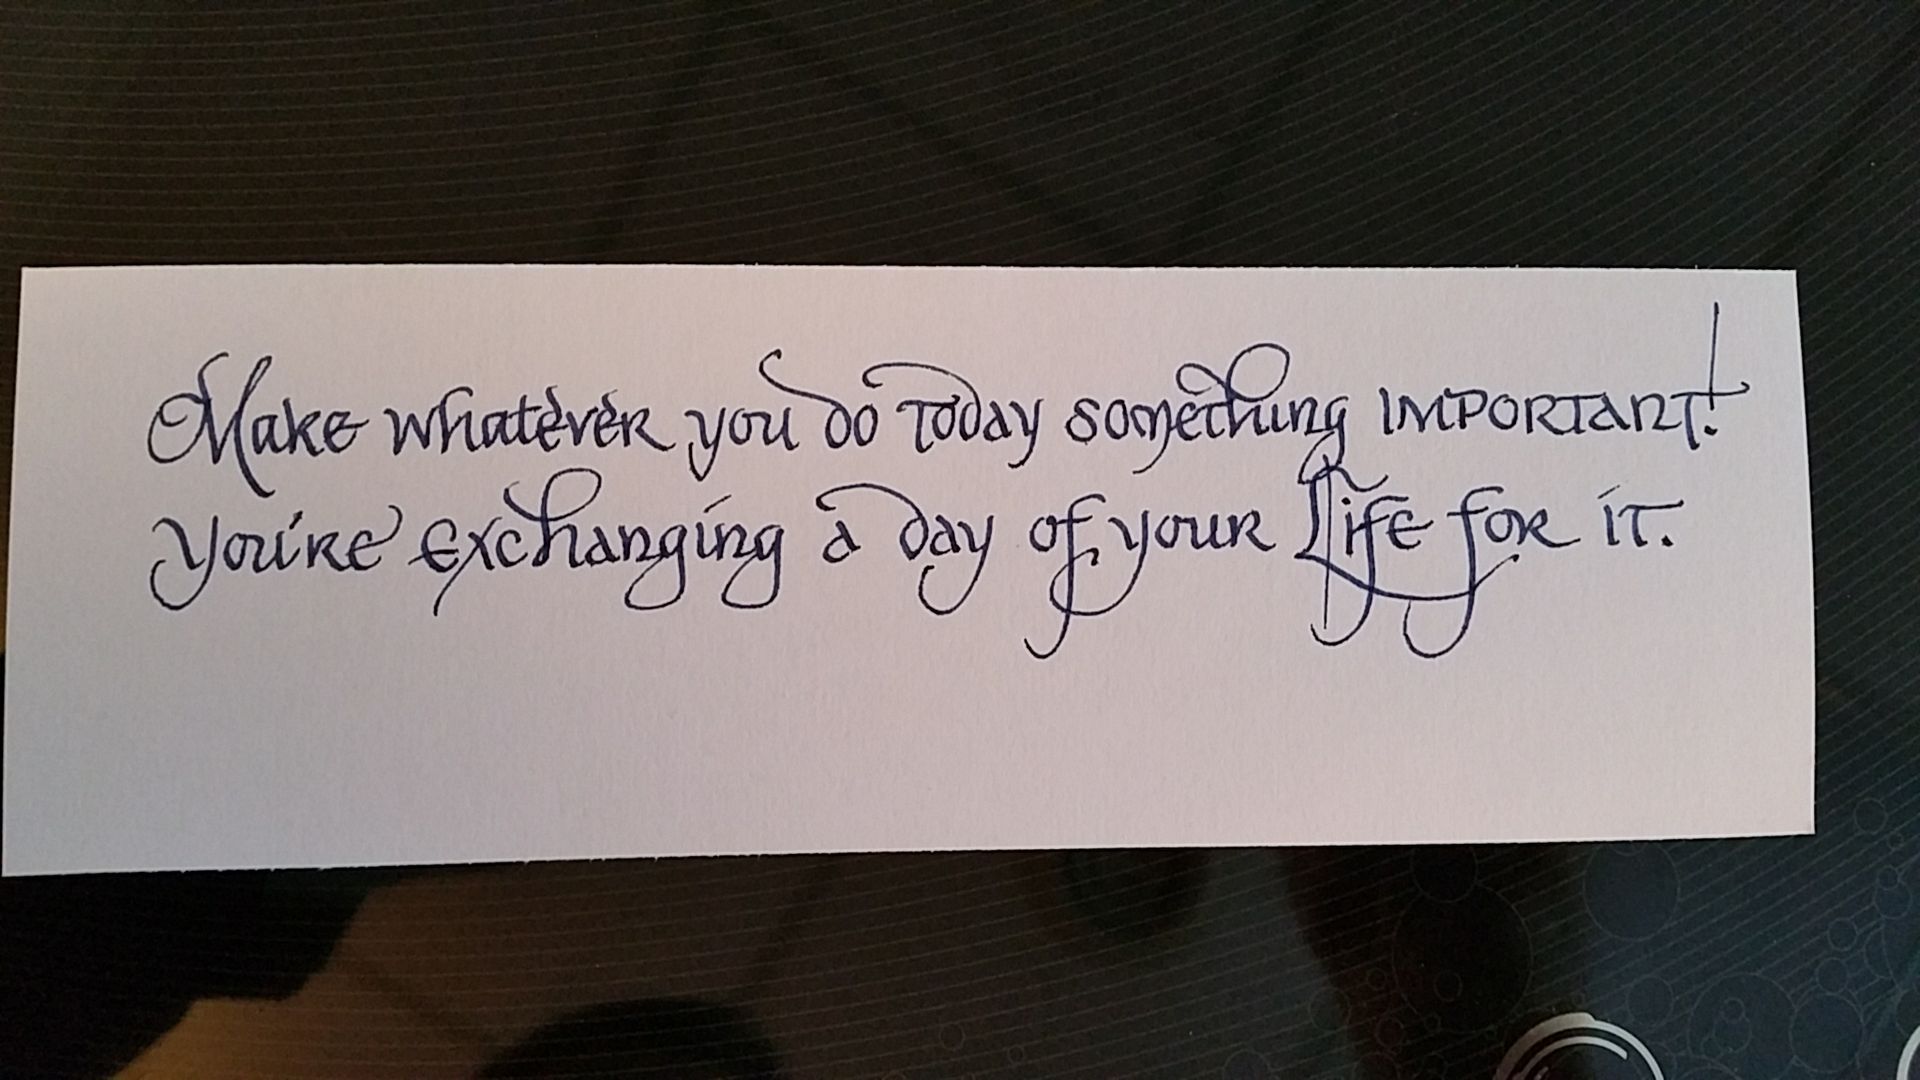 Make whatever you do today something IMPORTANT!
You're exchanging a day of your Life for it.